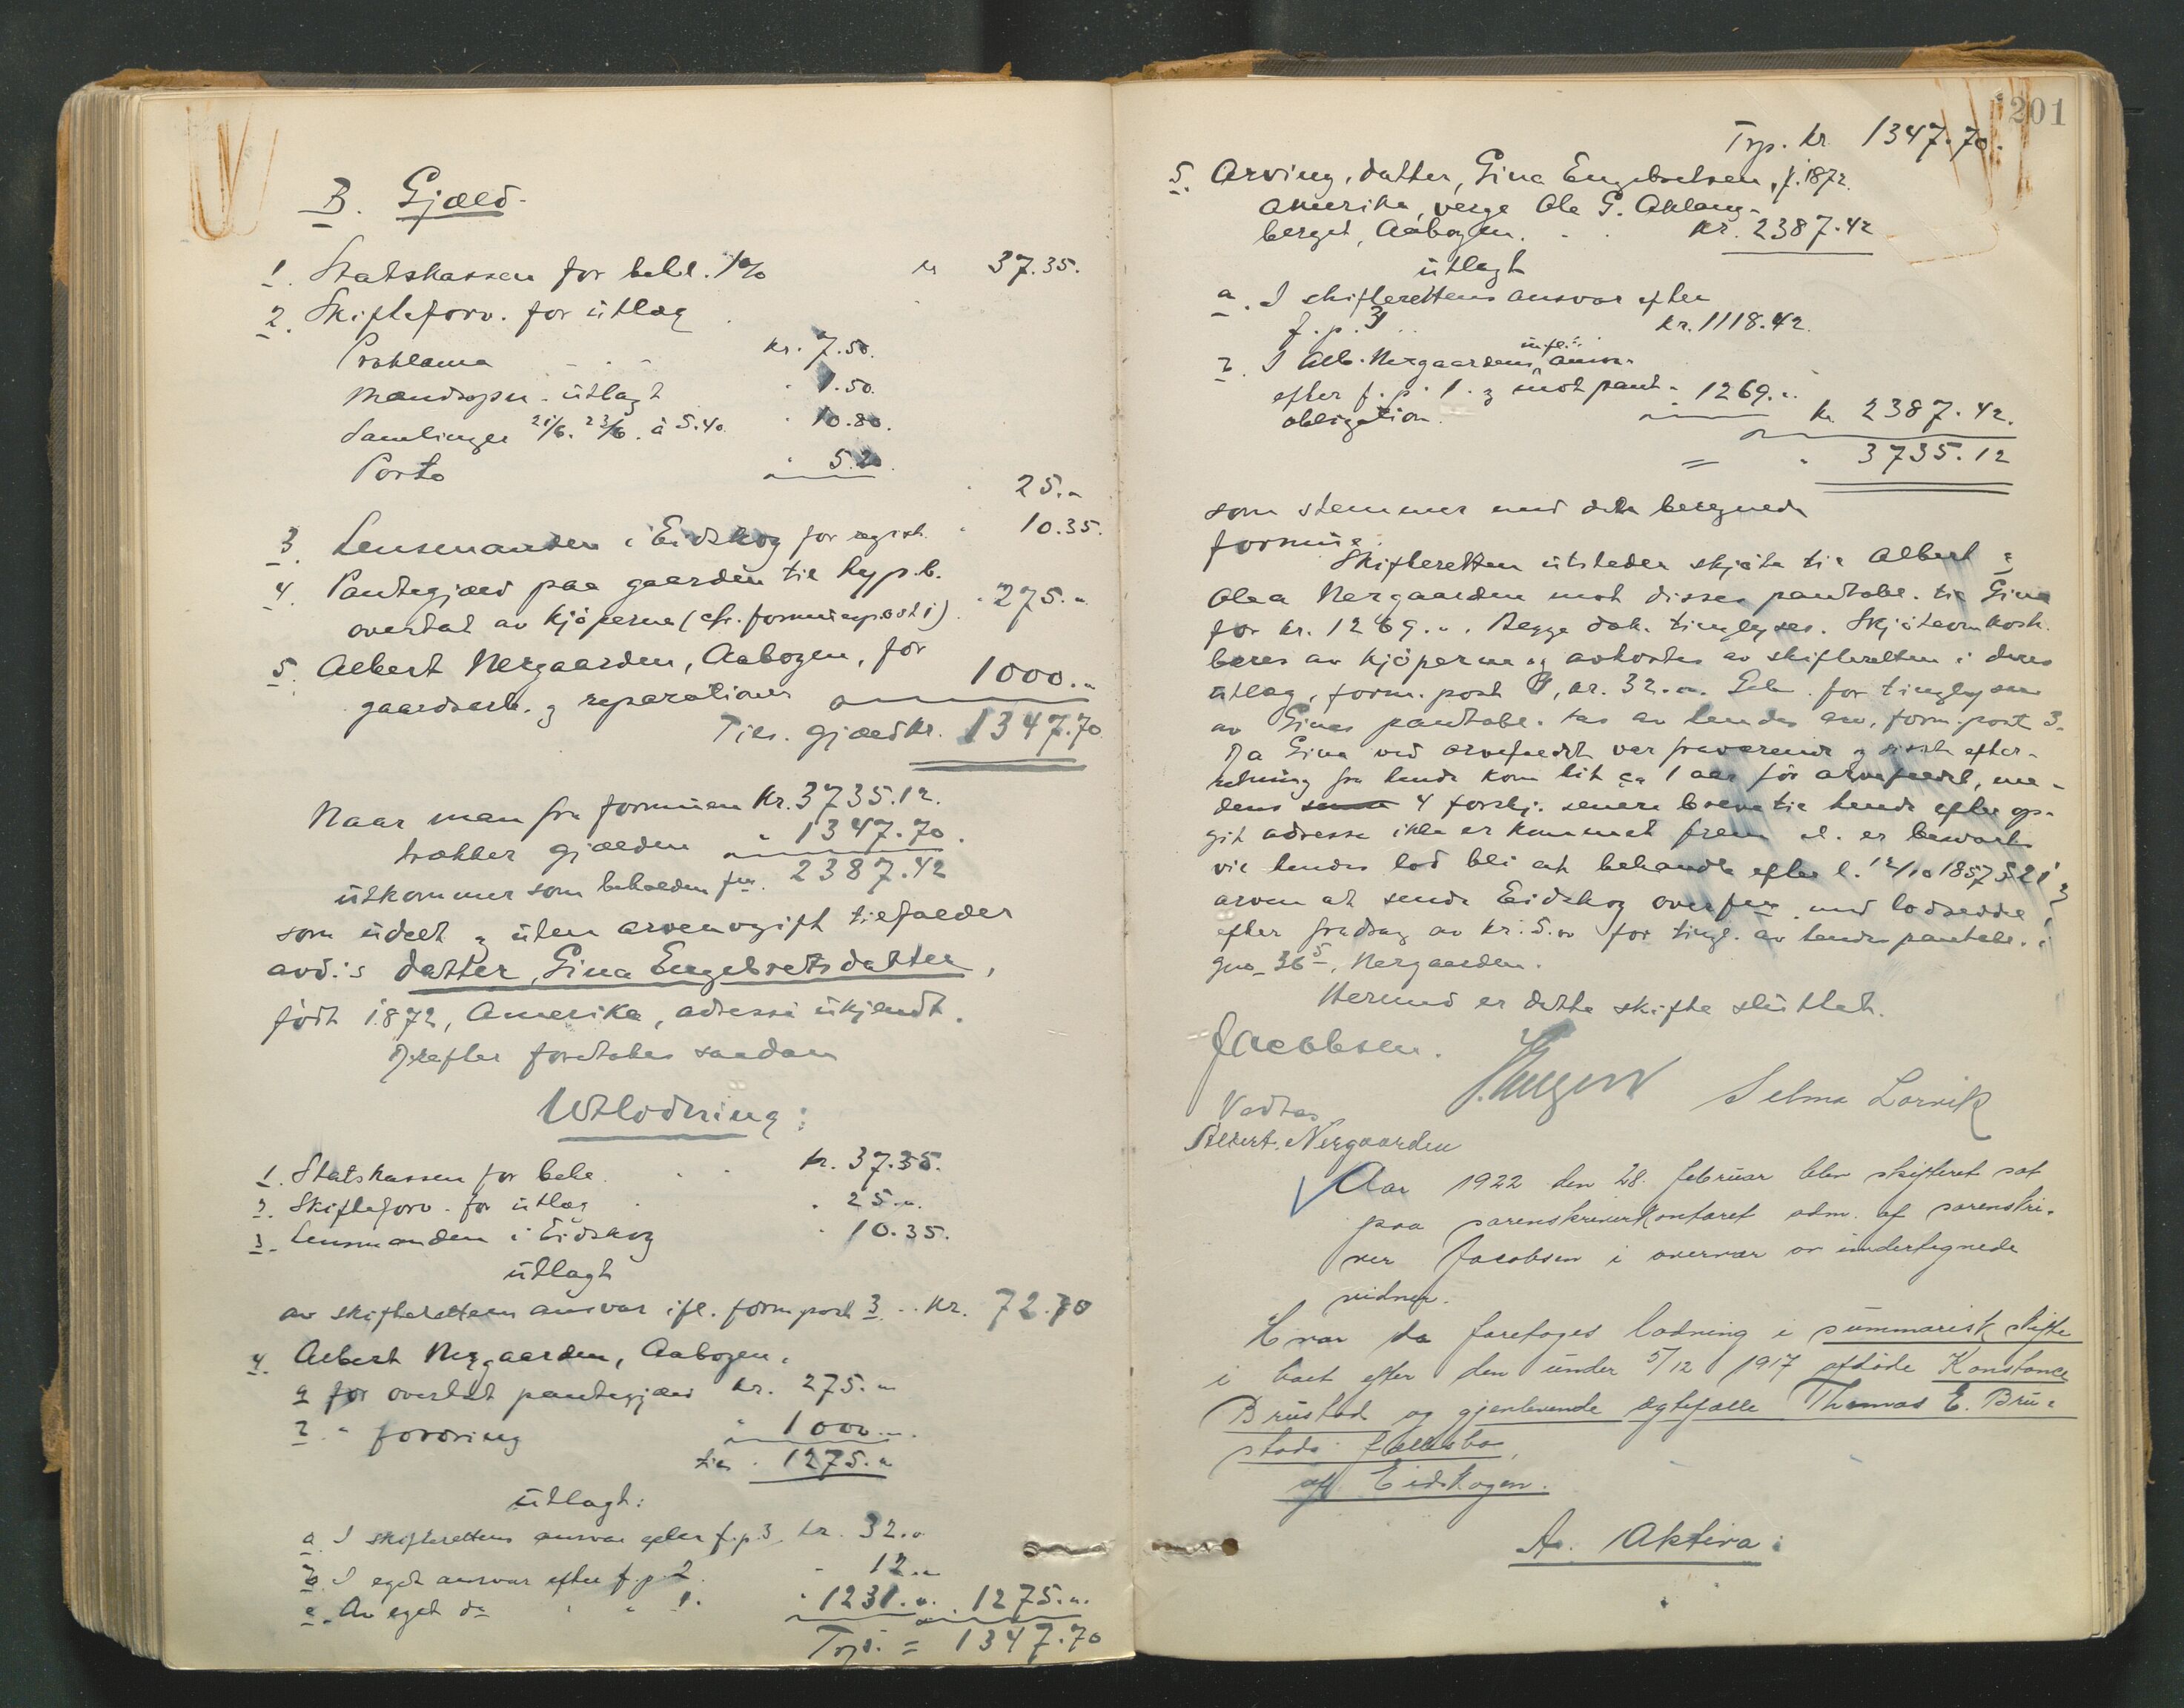 B. Gjæld.
1. Statskassen for behl. 1% kr 37.35.
2. Skifteforv. for utlæg
Proklama kr. 7.50.
Mandsopn. utlagt " 1.50.
Samlinger 21/6. 23/6. à 5.40 " 10.80.
Porto " 5.20.
" 25.-
3. Lensmanden i Eidskog for regist. " 10.35.
4. Pantegjæld paa gaarden til hyp.b.
overtat av kjøperne (cfr. formuespost 1) " 275.-
5. Albert Nergaarden, Aabogen, for
gaardsarb. og reparationer 1000.-
Tils. gjæld kr. 1347.70
Naar man fra formuen kr. 3735.12.
trækker gjælden " 1347.70.
utkommer som beholden fm. 2387.42
som udelt og uten arveavgift tilfalder
avd.s datter, Gina Engebretsdatter,
født 1872, Amerika, adresse ukjendt.
Derefter foretokes saadan
Utlodning:
1. Statskassen for behl. kr. 37.35.
2. Skifteforv. for utlæg " 25.-
3. Lensmanden i Eidskog " 10.35.
utlagt
av skifterettens ansvar ifl. form.post 3 .. kr. 72.70
4. Albert Nergaarden, Aabogen,
a for overtat pantegjæld kr. 275.-
b. " fordring " 1000.-
tils. 1275.-
utlagt:
a. I skifterettens ansvar efter f.p.3. kr. 32.-
b. I eget ansvar efter f.p.2. " 12.-
c. Av eget do " " 1. " 1231.- 1275.-
Trsp. = 1347.70
201
Trsp. kr. 1347.70.
5. Arving, datter, Gina Engebretsen, f. 1872.
Amerika, verge Ole G. Aklang-
berget, Aabogen. kr. 2387.42
utlagt
a. I skifterettens ansvar efter
f.p.3 .. kr. 1118.42.
b. I Alb. Nergaardens ansv.
efter f.p. 1. og mot pant- " 1269.-
obligation. kr. 2387.42.
= " 3735.12
som stemmer med den beregnede
formue.
Skifteretten utsteder skjøte til Albert &
Olea Nergaarden mot disses pantobl. til Gina
for kr. 1269.-. Begge dok. tinglyses. Skjøteomkost.
bæres av kjøperne og avkortes av skifteretten i deres
utlæg, form. post 4, kr. 32.-. Geb. for tinglysn
av Ginas pantobl. tas av hendes arv, form.post 3.
Da Gina ved arvefaldet var fraværende og sidste efter-
retning fra hende kom hit ca 1 aar før arvefaldet, me-
dens 4 forskj. senere breve til hende efter op-
git adresse ikke er kommet frem el. er besvart
vil hendes lod bli at behandle efter l. 12/10 1857 § 21 &
arven at sende Eidskog overfm. med lodseddel
efter fradrag av kr. 5.- for tingl. av hendes pantobl. i
gno 36⁵, Nergaarden.
Hermed er dette skifte sluttet.
Jacobsen.
Selma Lorvik
Vedtas
Albert. Nergaarden
Aar 1922 den 28. februar blev skifteret sat
paa sorenskriverkontoret adm. af sorenskri-
ver Jacobsen i overvær av undertegnede
vidner.
Hvor da foretoges lodning i summarisk skifte
i boet efter den under 5/12 1917 afdøde Konstance
Brustad og gjenlevende ægtefælle Thomas E. Bru-
stads fællesbo,
af Eidskogen.
A. Aktiva: